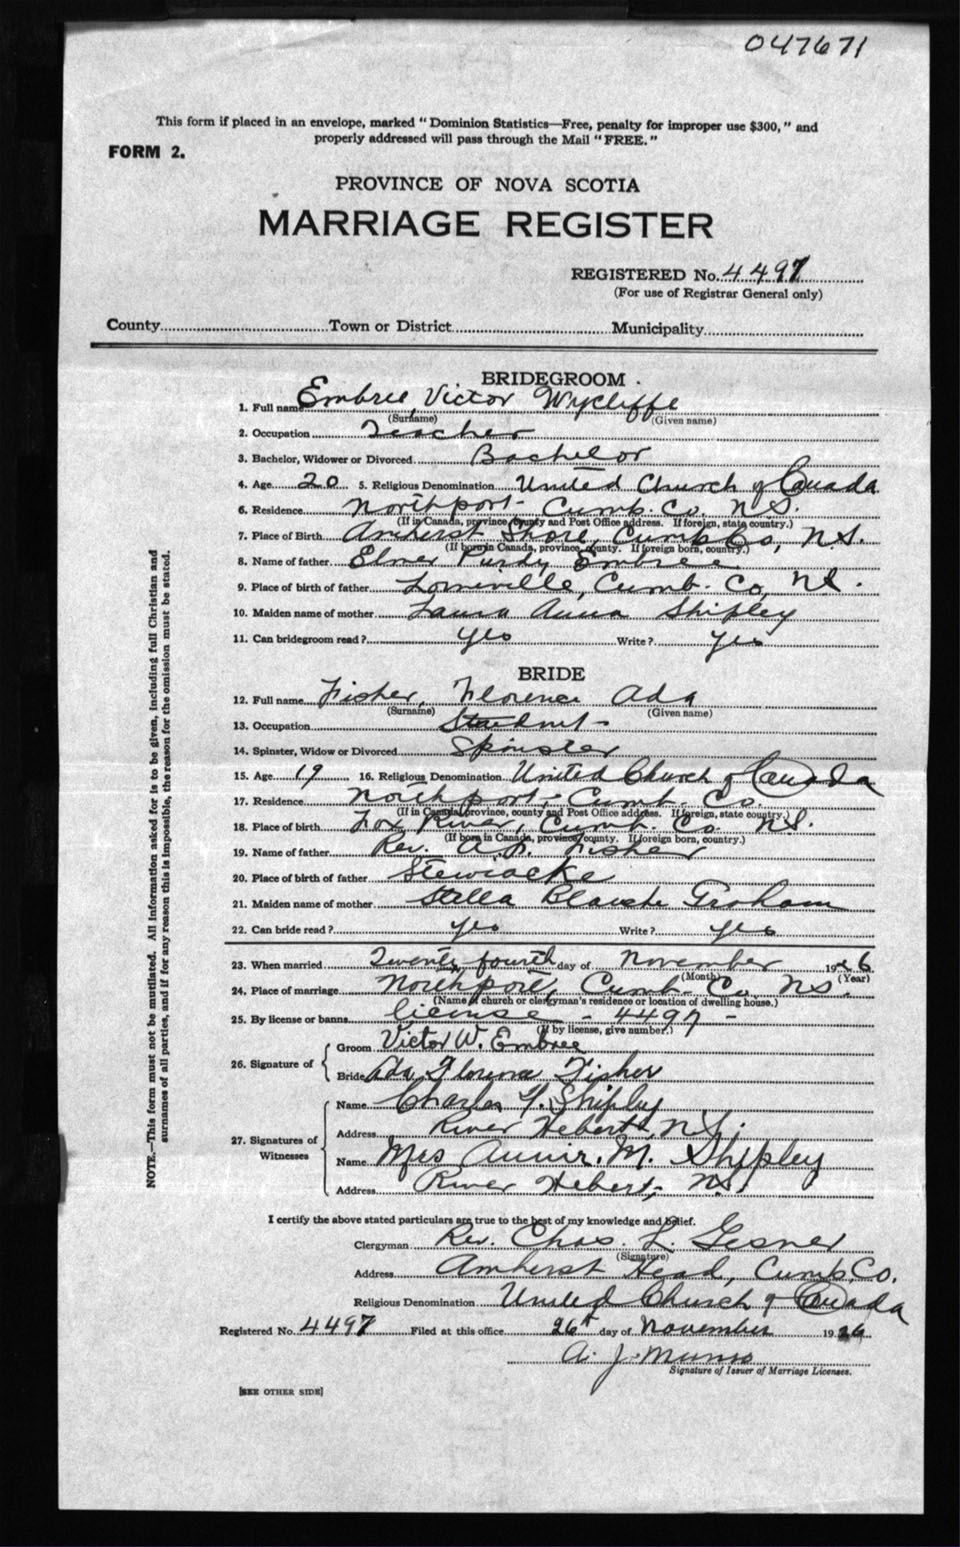 047671
This form if placed in an envelope, marked "Dominion Statistics—Free, penalty for improper use $300," and
properly addressed will pass through the Mail "FREE."
FORM 2.
PROVINCE OF NOVA SCOTIA
MARRIAGE REGISTER
REGISTERED No. 4497
(For use of Registrar General only)
County Town or District Municipality
BRIDEGROOM
1. Full name Embree, Victor Wycliffe
(Surname) (Given name)
2. Occupation Teacher
3. Bachelor, Widower or Divorced Bachelor
4. Age 20 5. Religious Denomination United Church of Canada
6. Residence Northport Cumb. Co. N.S.
(If in Canada, province, county and Post Office address. If foreign, state country.)
7. Place of Birth Amherst Shore, Cumb Co, N.S.
(If born in Canada, province, county. If foreign born, country.)
8. Name of father Elmer Purdy Embree
9. Place of birth of father Lorneville, Cumb. Co, N.S.
10. Maiden name of mother Laura Anna Shipley
11. Can bridegroom read? yes Write? yes
BRIDE
12. Full name Fisher, Florence Ada
(Surname) (Given name)
13. Occupation Student
14. Spinster, Widow or Divorced Spinster
15. Age 19 16. Religious Denomination United Church of Canada
17. Residence Northport, Cumb. Co.
(If in Canada, province, county and Post Office address. If foreign, state country.)
18. Place of birth Fox River, Cumb. Co. N.S.
(If born in Canada, province, county. If foreign born, country.)
19. Name of father Rev. Fisher
20. Place of birth of father Stewiacke
21. Maiden name of mother Stella Blanche Graham
22. Can bride read? yes Write? yes
23. When married Twenty fourth day of November 1926
(Month) (Year)
24. Place of marriage Northport, Cumb. Co. N.S.
(Name of church or clergyman's residence or location of dwelling house.)
25. By license or banns license - 4497 -
(If by license, give number.)
26. Signature of Groom Victor W. Embree
Bride Ada Florence Fisher
27. Signatures of Witnesses Name Charles Shipley
Address River Hebert, N.S.
Name Mrs Annie. M. Shipley
Address River Hebert, N.S.
I certify the above stated particulars are true to the best of my knowledge and belief.
Clergyman Rev. Chas. L. Gesner
(Signature)
Address Amherst Head, Cumb. Co.
Religious Denomination United Church of Canada
Registered No. 4497 Filed at this office 26th day of November 1926
A. J. Munro
Signature of Issuer of Marriage Licenses.
[SEE OTHER SIDE]
NOTE.—This form must not be mutilated. All information asked for is to be given, including full Christian and
surnames of all parties, and if for any reason this is impossible, the reason for the omission must be stated.